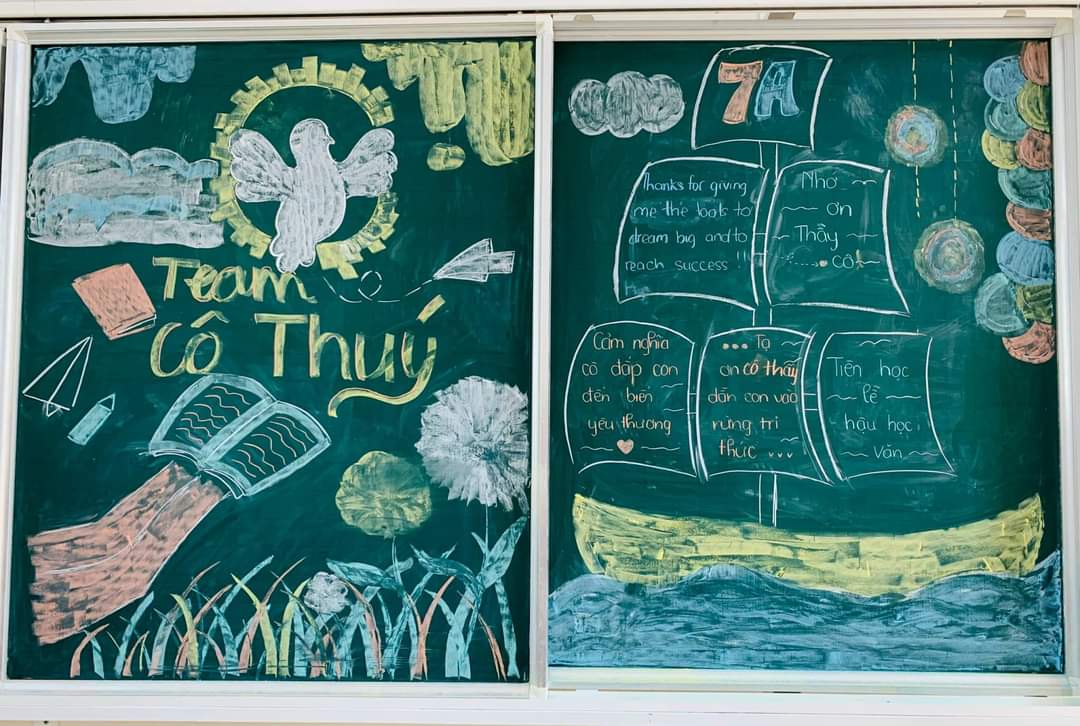 Team
Cô Thuý
7A
Thanks for giving
me the tools to
dream big and to
reach success !!
Nhớ
ơn
Thầy
cô
Cảm nghĩa
cô đắp con
đến biển
yêu thương
... Tạ
ơn cô thầy
dẫn con vào
rừng tri
thức ...
Tiên học
lễ
hậu học
văn